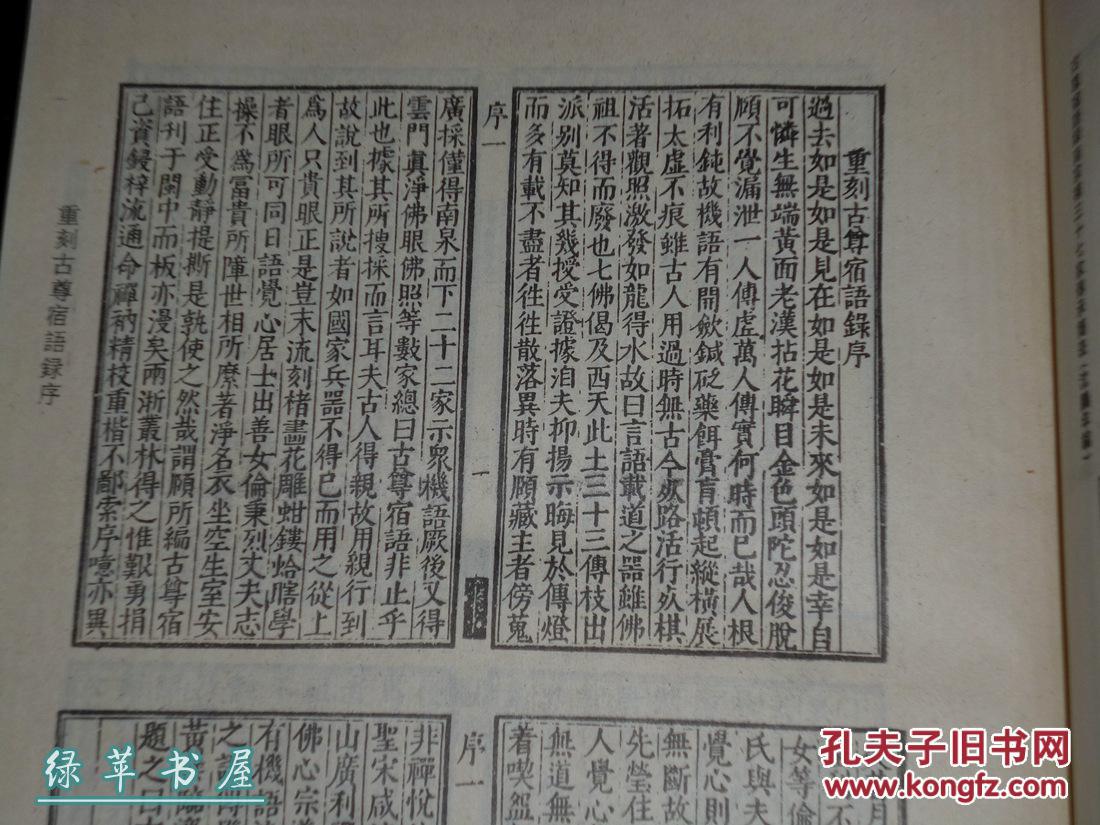 重刻古尊宿語錄序
過去如是如是見在如是如是未來如是如是幸自
可憐生無端黃面老漢拈花瞬目金色頭陀忍俊脫
頋不覺漏泄一人傳虛萬人傳實何時而已哉人根
有利鈍故機語有開斂鍼砭藥餌膏肓頓起縱橫展
拓太虛不痕雖古人用過時無古今死路活行死棋
活著觀照激發如龍得水故曰言語載道之器雖佛
祖不得而廢也七佛偈及西天此土三十三傳枝出
派别莫知其幾授受證據洎夫抑揚示晦見於傳燈
而多有載不盡者徃徃散落異時有頋藏主者傍蒐
序一
一
廣採僅得南泉而下二十二家示衆機語厥後又得
雲門眞淨佛眼佛照等數家總曰古尊宿語非止乎
此也據其所搜採而言耳夫古人得親故用親行到
故說到其所說者如國家兵器不得已而用之從上
爲人只貴眼正是豈末流刻楮畵花雕蚶鏤蛤瞎學
者眼所可同日語覺心居士出善女倫秉烈丈夫志
操不爲富貴所障世相所縻著淨名衣坐空生室安
住正受動靜提撕是孰使之然哉謂頋所編古尊宿
語刊于閩中而板亦漫矣兩浙叢林得之惟艱勇捐
己資鋟梓流通命禪衲精校重楷不鄙索序噫亦異
重刻古尊宿語録序
序一
非禪悅
聖宋咸
山廣利
佛心宗
有機語
黃
題之曰
女等倫
氏與夫
覺心則
無斷故
先瑩住
人覺心
無道無
着喫盌
绿苹书屋
孔夫子旧书网
www.kongfz.com